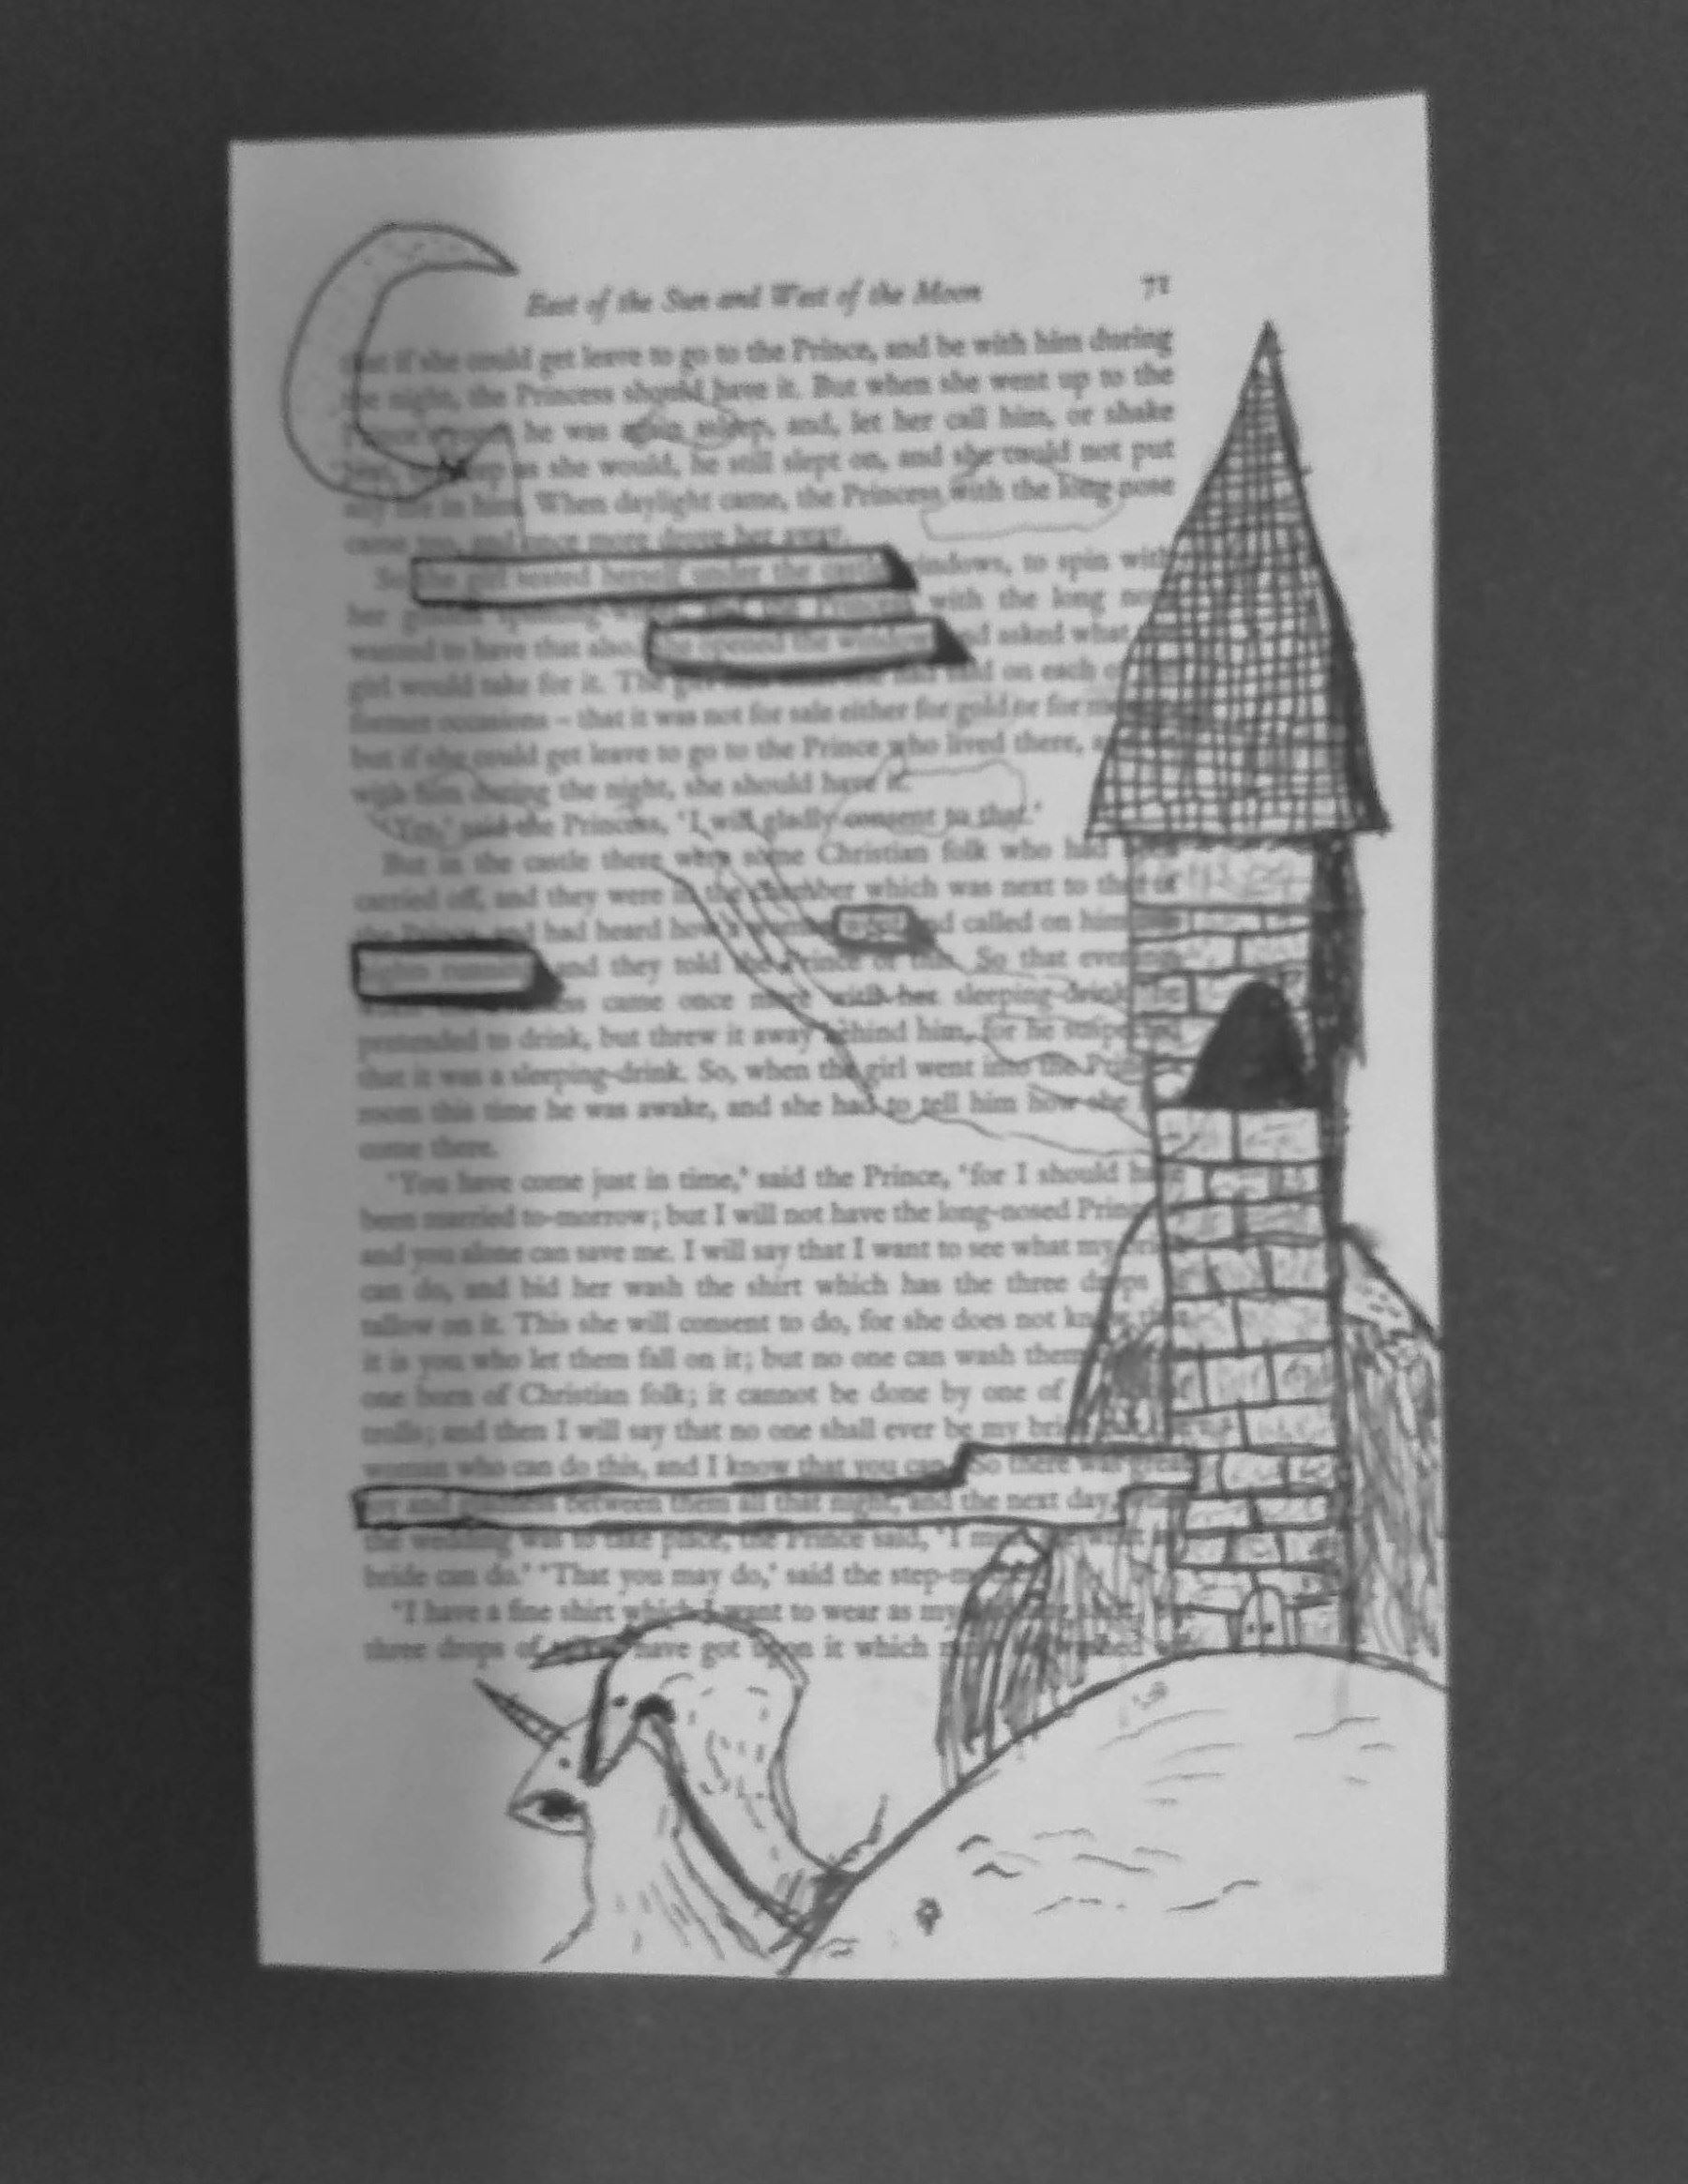 East of the Sun and West of the Moon 71
if she could get leave to go to the Prince, and be with him during
night, the Princess should have it. But when she went up to the
he was again asleep, and, let her call him, or shake
as she would, he still slept on, and she could not put
in him. When daylight came, the Princess with the long nose
came too, and once more drove her away.
So the girl seated herself under the castle windows, to spin with
her the Princess with the long
wanted to have that also. she opened the window and asked what
girl would take for it. The girl said on each
former occasions – that it was not for sale either for gold or for
but if she could get leave to go to the Prince who lived there,
with him during the night, she should have it.
'Yes,' said the Princess, 'I will gladly consent to that.'
But in the castle there were some Christian folk who had
carried off, and they were in the chamber which was next to that of
the Prince, and had heard how a woman wept and called on him
nights running and they told the Prince of this. So that evening,
came once more with her sleeping-drink, he
pretended to drink, but threw it away behind him, for he suspected
that it was a sleeping-drink. So, when the girl went into the
room this time he was awake, and she had to tell him how she
come there.
'You have come just in time,' said the Prince, 'for I should have
been married to-morrow; but I will not have the long-nosed
and you alone can save me. I will say that I want to see what my
can do, and bid her wash the shirt which has the three drops
tallow on it. This she will consent to do, for she does not know that
it is you who let them fall on it; but no one can wash them
one born of Christian folk; it cannot be done by one of
trolls; and then I will say that no one shall ever be my
woman who can do this, and I know that you can. So there was great
joy and gladness between them all that night, and the next day,
the wedding was to take place, the Prince said, 'I must
bride can do.' 'That you may do,' said the
'I have a fine shirt which I want to wear as my
three drops of have got upon it which